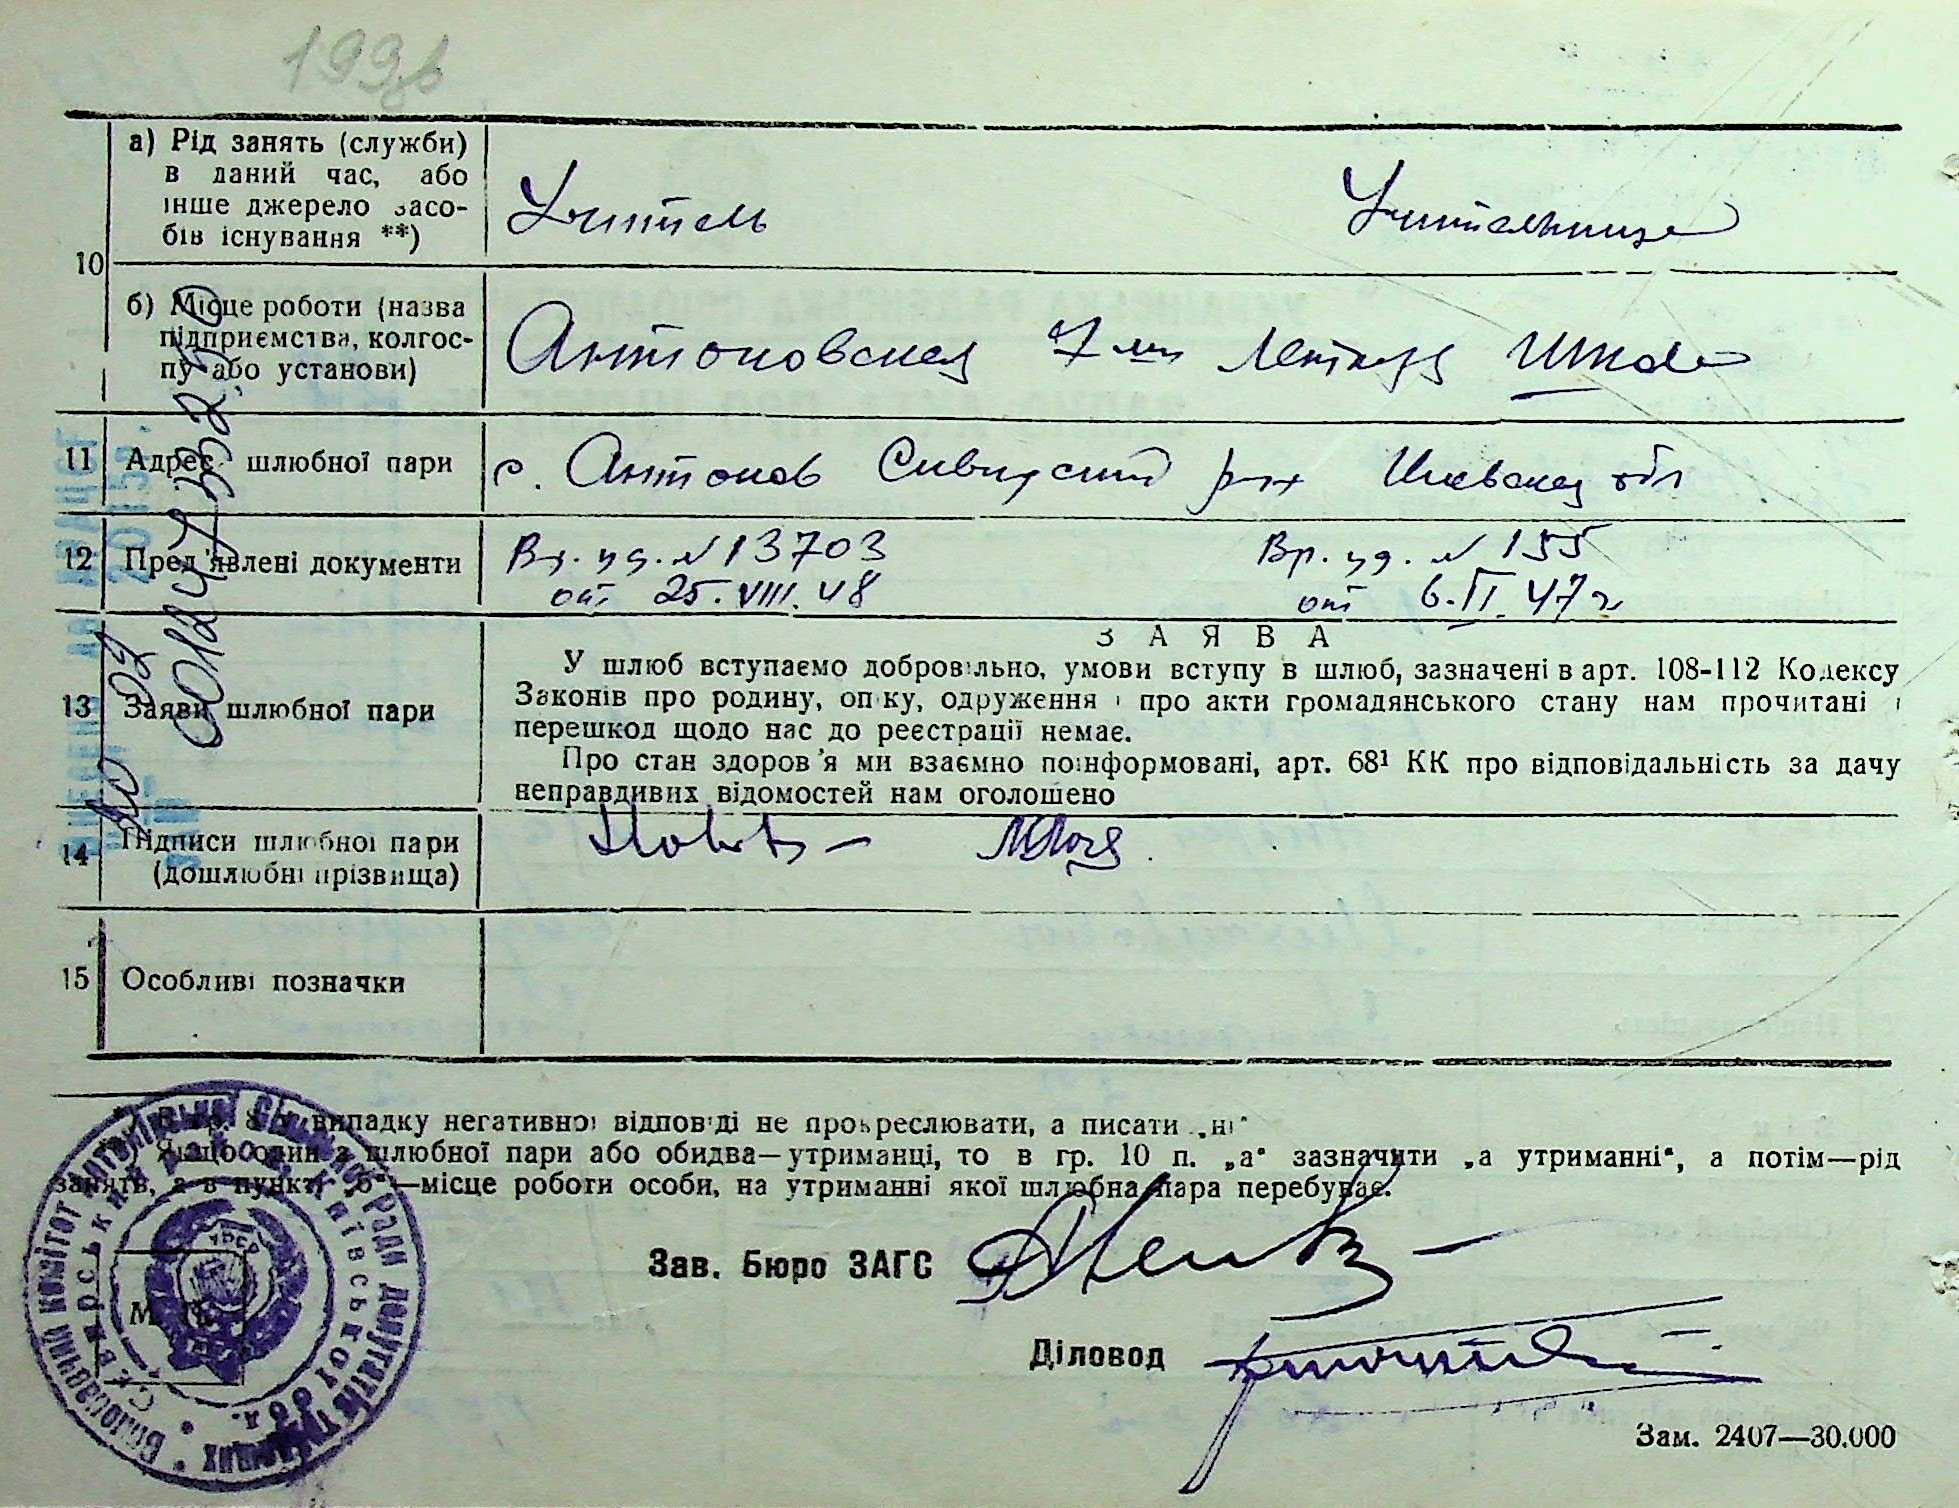 199зв
10
а) Рід занять (служби)
в даний час, або
інше джерело засо-
бів існування **)
Учитель Учительница
б) Місце роботи (назва
підприємства, колгос-
пу або установи)
Антоновская 7 ми Летняя Школа
11 Адрес шлюбної пари
с. Антонов Сквирский р-н Киевская обл
12 Пред'явлені документи
Вр. уд. N 13703 Вр. уд. N 155
от 25.VIII.48 от 6.II.47 г
13 Заяви шлюбної пари
ЗАЯВА
У шлюб вступаємо добровільно, умови вступу в шлюб, зазначені в арт. 108-112 Кодексу
Законів про родину, опіку, одруження і про акти громадянського стану нам прочитані і
перешкод щодо нас до реєстрації немає.
Про стан здоров'я ми взаємно поінформовані, арт. 68¹ КК про відповідальність за дачу
неправдивих відомостей нам оголошено
14 Підписи шлюбної пари
(дошлюбні прізвища)
15 Особливі позначки
гр. 8 у випадку негативної відповіді не прокреслювати, а писати „ні“
Якщо один з шлюбної пари або обидва—утриманці, то в гр. 10 п. „а“ зазначити „а утриманні“, а потім—рід
занять, а в пункті „б“—місце роботи особи, на утриманні якої шлюбна пара перебуває.
Зав. Бюро ЗАГС
М. П.
Діловод
Зам. 2407—30.000